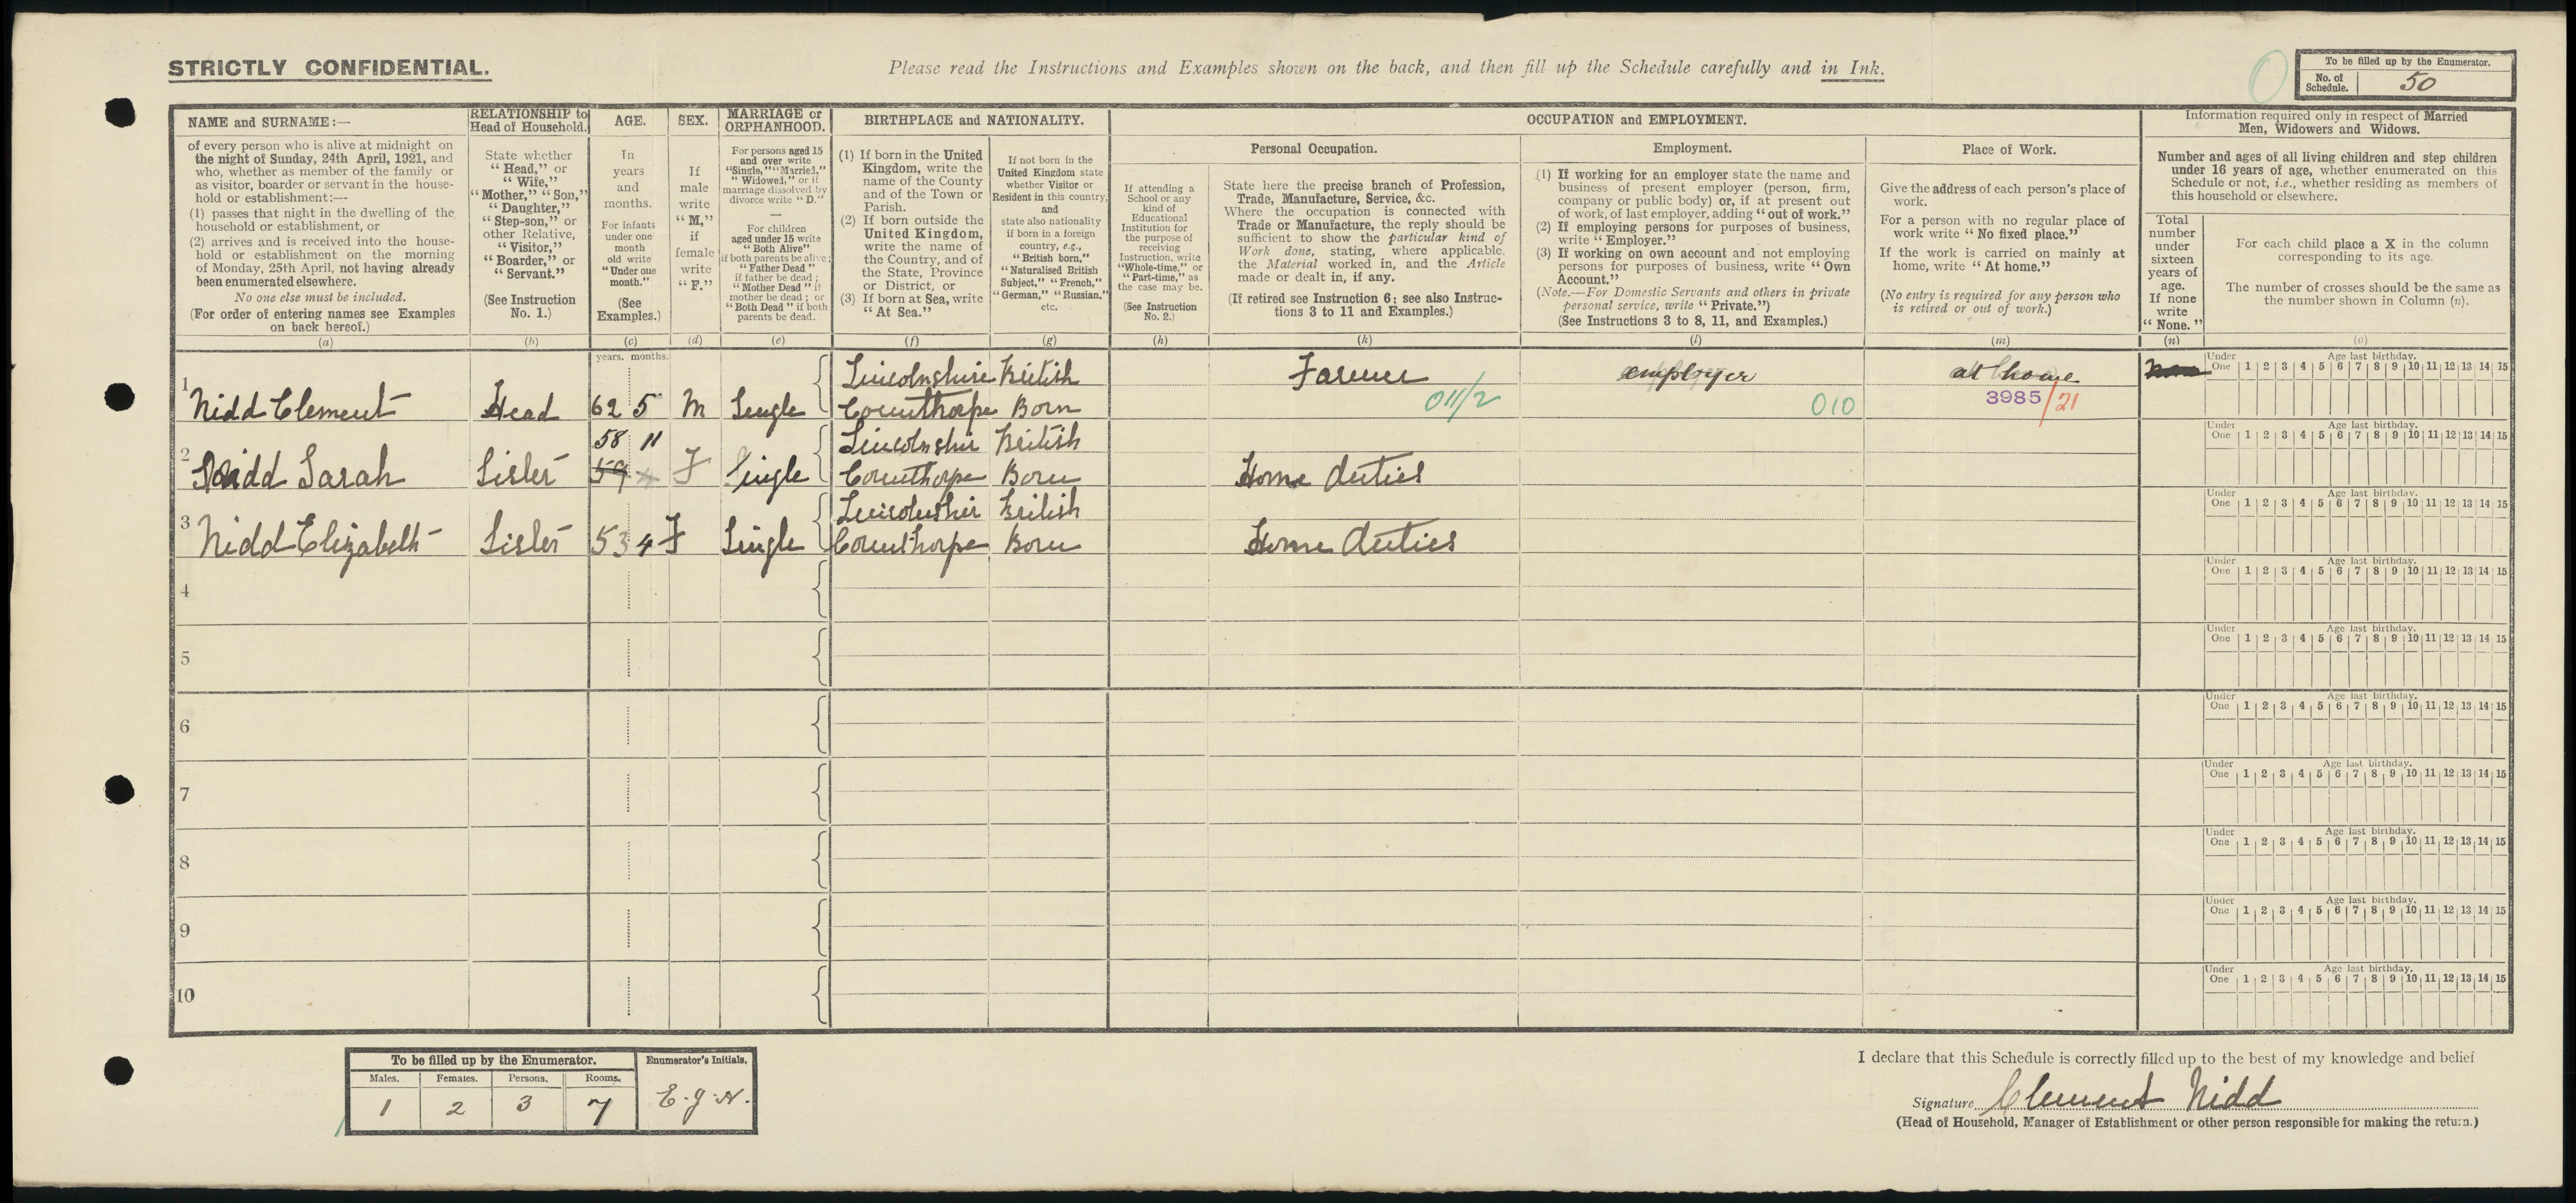 STRICTLY CONFIDENTIAL.
Please read the Instructions and Examples shown on the back, and then fill up the Schedule carefully and in Ink.
To be filled up by the Enumerator.
No. of Schedule. 50
NAME and SURNAME:—
of every person who is alive at midnight on
the night of Sunday, 24th April, 1921, and
who, whether as member of the family or
as visitor, boarder or servant in the house-
hold or establishment:—
(1) passes that night in the dwelling of the
household or establishment, or
(2) arrives and is received into the house-
hold or establishment on the morning
of Monday, 25th April, not having already
been enumerated elsewhere.
No one else must be included.
(For order of entering names see Examples
on back hereof.)
(a)
RELATIONSHIP to
Head of Household.
State whether
"Head," or
"Wife,"
"Mother," "Son,"
"Daughter,"
"Step-son," or
other Relative,
"Visitor,"
"Boarder," or
"Servant."
(See Instruction
No. 1.)
(b)
AGE.
In
years
and
months.
For infants
under one
month
old write
"Under one
month."
(See
Examples.)
(c)
SEX.
If
male
write
"M,"
if
female
write
"F."
(d)
MARRIAGE or
ORPHANHOOD.
For persons aged 15
and over write
"Single," "Married,"
"Widowed," or if
marriage dissolved by
divorce write "D."
—
For children
aged under 15 write
"Both Alive"
if both parents be alive;
"Father Dead"
if father be dead;
"Mother Dead" if
mother be dead; or
"Both Dead" if both
parents be dead.
(e)
BIRTHPLACE and NATIONALITY.
(1) If born in the United
Kingdom, write the
name of the County
and of the Town or
Parish.
(2) If born outside the
United Kingdom,
write the name of
the Country, and of
the State, Province
or District, or
(3) If born at Sea, write
"At Sea."
(f)
If not born in the
United Kingdom state
whether Visitor or
Resident in this country,
and
state also nationality
if born in a foreign
country, e.g.,
"British born,"
"Naturalised British
Subject," "French,"
"German," "Russian,"
etc.
(g)
OCCUPATION and EMPLOYMENT.
If attending a
School or any
kind of
Educational
Institution for
the purpose of
receiving
Instruction, write
"Whole-time," or
"Part-time," as
the case may be.
(See Instruction
No. 2.)
(h)
Personal Occupation.
State here the precise branch of Profession,
Trade, Manufacture, Service, &c.
Where the occupation is connected with
Trade or Manufacture, the reply should be
sufficient to show the particular kind of
Work done, stating, where applicable,
the Material worked in, and the Article
made or dealt in, if any.
(If retired see Instruction 6; see also Instruc-
tions 3 to 11 and Examples.)
(k)
Employment.
(1) If working for an employer state the name and
business of present employer (person, firm,
company or public body) or, if at present out
of work, of last employer, adding "out of work."
(2) If employing persons for purposes of business,
write "Employer."
(3) If working on own account and not employing
persons for purposes of business, write "Own
Account."
(Note.—For Domestic Servants and others in private
personal service, write "Private.")
(See Instructions 3 to 8, 11, and Examples.)
(l)
Place of Work.
Give the address of each person's place of
work.
For a person with no regular place of
work write "No fixed place."
If the work is carried on mainly at
home, write "At home."
(No entry is required for any person who
is retired or out of work.)
(m)
Information required only in respect of Married
Men, Widowers and Widows.
Number and ages of all living children and step children
under 16 years of age, whether enumerated on this
Schedule or not, i.e., whether residing as members of
this household or elsewhere.
Total
number
under
sixteen
years of
age.
If none
write
"None."
(n)
For each child place a X in the column
corresponding to its age.
The number of crosses should be the same as
the number shown in Column (n).
(o)
years. months.
1 Nidd Clement Head 62 5 M Single Lincolnshire Cornthorpe British Born Farmer 011/2 employer 010 at home 3985/21
Under One Age last birthday. 1 2 3 4 5 6 7 8 9 10 11 12 13 14 15
2 Nidd Sarah Sister 58 11 59 F Single Lincolnshir Cornthorpe British Born Home duties
Under One Age last birthday. 1 2 3 4 5 6 7 8 9 10 11 12 13 14 15
3 Nidd Elizabeth Sister 53 4 F Single Lincolnshir Cornthorpe British Born Home duties
Under One Age last birthday. 1 2 3 4 5 6 7 8 9 10 11 12 13 14 15
4
Under One Age last birthday. 1 2 3 4 5 6 7 8 9 10 11 12 13 14 15
5
Under One Age last birthday. 1 2 3 4 5 6 7 8 9 10 11 12 13 14 15
6
Under One Age last birthday. 1 2 3 4 5 6 7 8 9 10 11 12 13 14 15
7
Under One Age last birthday. 1 2 3 4 5 6 7 8 9 10 11 12 13 14 15
8
Under One Age last birthday. 1 2 3 4 5 6 7 8 9 10 11 12 13 14 15
9
Under One Age last birthday. 1 2 3 4 5 6 7 8 9 10 11 12 13 14 15
10
Under One Age last birthday. 1 2 3 4 5 6 7 8 9 10 11 12 13 14 15
To be filled up by the Enumerator.
Males. Females. Persons. Rooms.
1 2 3 7
Enumerator's Initials.
E. J. N.
I declare that this Schedule is correctly filled up to the best of my knowledge and belief
Signature Clement Nidd
(Head of Household, Manager of Establishment or other person responsible for making the return.)